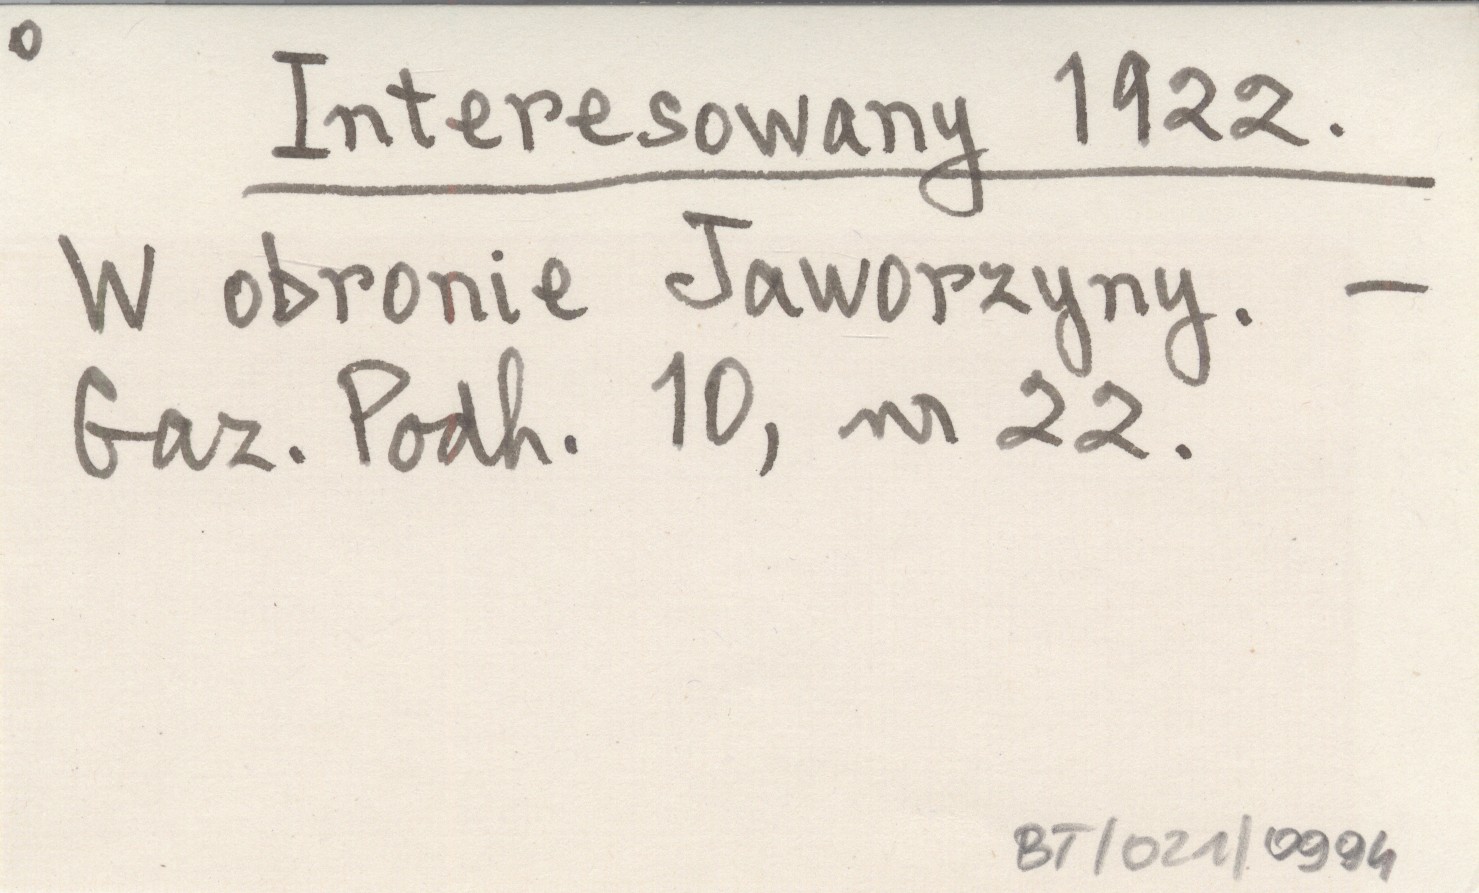 o
Interesowany 1922.
W obronie Jaworzyny. —
Gaz. Podh. 10, nr 22.
BT/021/0994